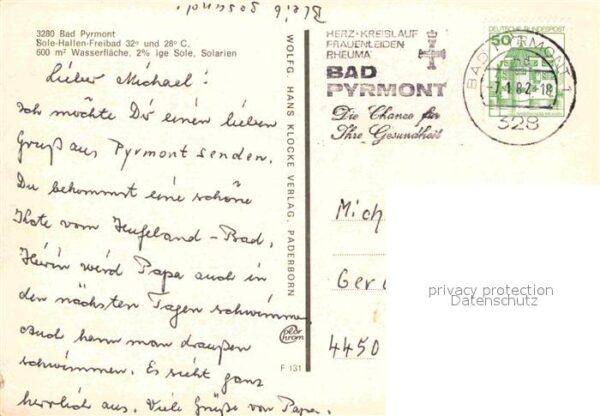 Bleib gesund!
3280 Bad Pyrmont
Sole-Hallen-Freibad 32° und 28° C.
600 m² Wasserfläche, 2% ige Sole, Solarien
Lieber Michael!
Ich möchte Dir einen lieben
Gruß aus Pyrmont senden.
Du bekommst eine schöne
Karte vom Hufeland-Bad.
Hierin wird Papa auch in
den nächsten Tagen schwimmen
Auch kann man draußen
schwimmen. Es sieht ganz
herrlich aus. Viele Grüße von Papa.
WOLFG. HANS KLOCKE VERLAG, PADERBORN
color
chrom
F 131
HERZ-KREISLAUF
FRAUENLEIDEN
RHEUMA
BAD
PYRMONT
Die Chance für
Ihre Gesundheit
DEUTSCHE BUNDESPOST
50
BAD PYRMONT 1
-7.1.82-18
328
Mich
Ger
4450
privacy protection
Datenschutz